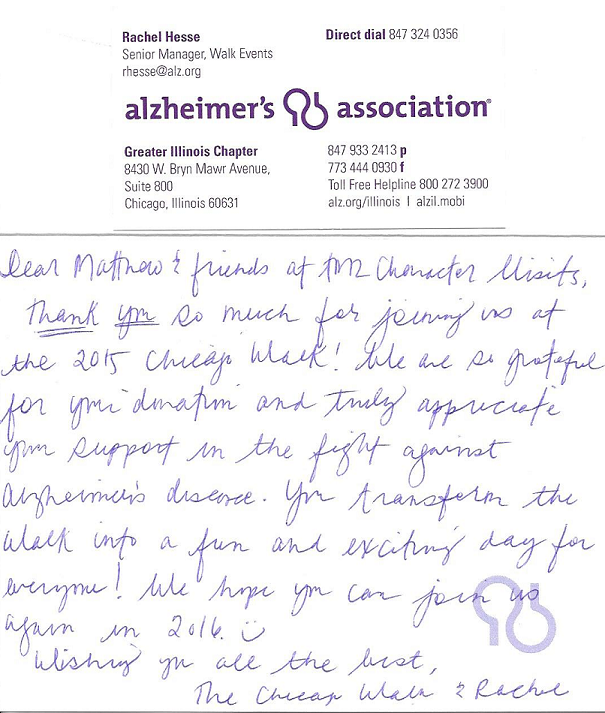 Rachel Hesse
Senior Manager, Walk Events
rhesse@alz.org
Direct dial 847 324 0356
alzheimer's association®
Greater Illinois Chapter
8430 W. Bryn Mawr Avenue,
Suite 800
Chicago, Illinois 60631
847 933 2413 p
773 444 0930 f
Toll Free Helpline 800 272 3900
alz.org/illinois | alzil.mobi
Dear Matthew & friends at TM2 Character Visits,
Thank you so much for joining us at
the 2015 Chicago Walk! We are so grateful
for your donation and truly appreciate
your support in the fight against
Alzheimer's disease. You transform the
Walk into a fun and exciting day for
everyone! We hope you can join us
again in 2016. ☺
Wishing you all the best,
The Chicago Walk & Rachel